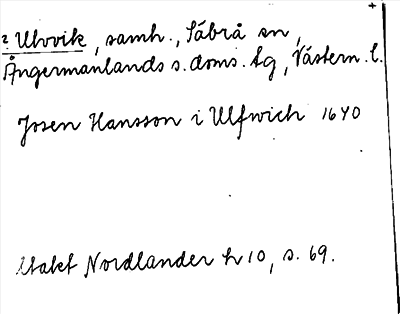 2 Ulvvik, samh., Säbrå sn,
Ångermanlands s. doms. tg, Västern. l.
Josen Hansson i Ulfwich 1640
Nordlander h 10, s. 69.